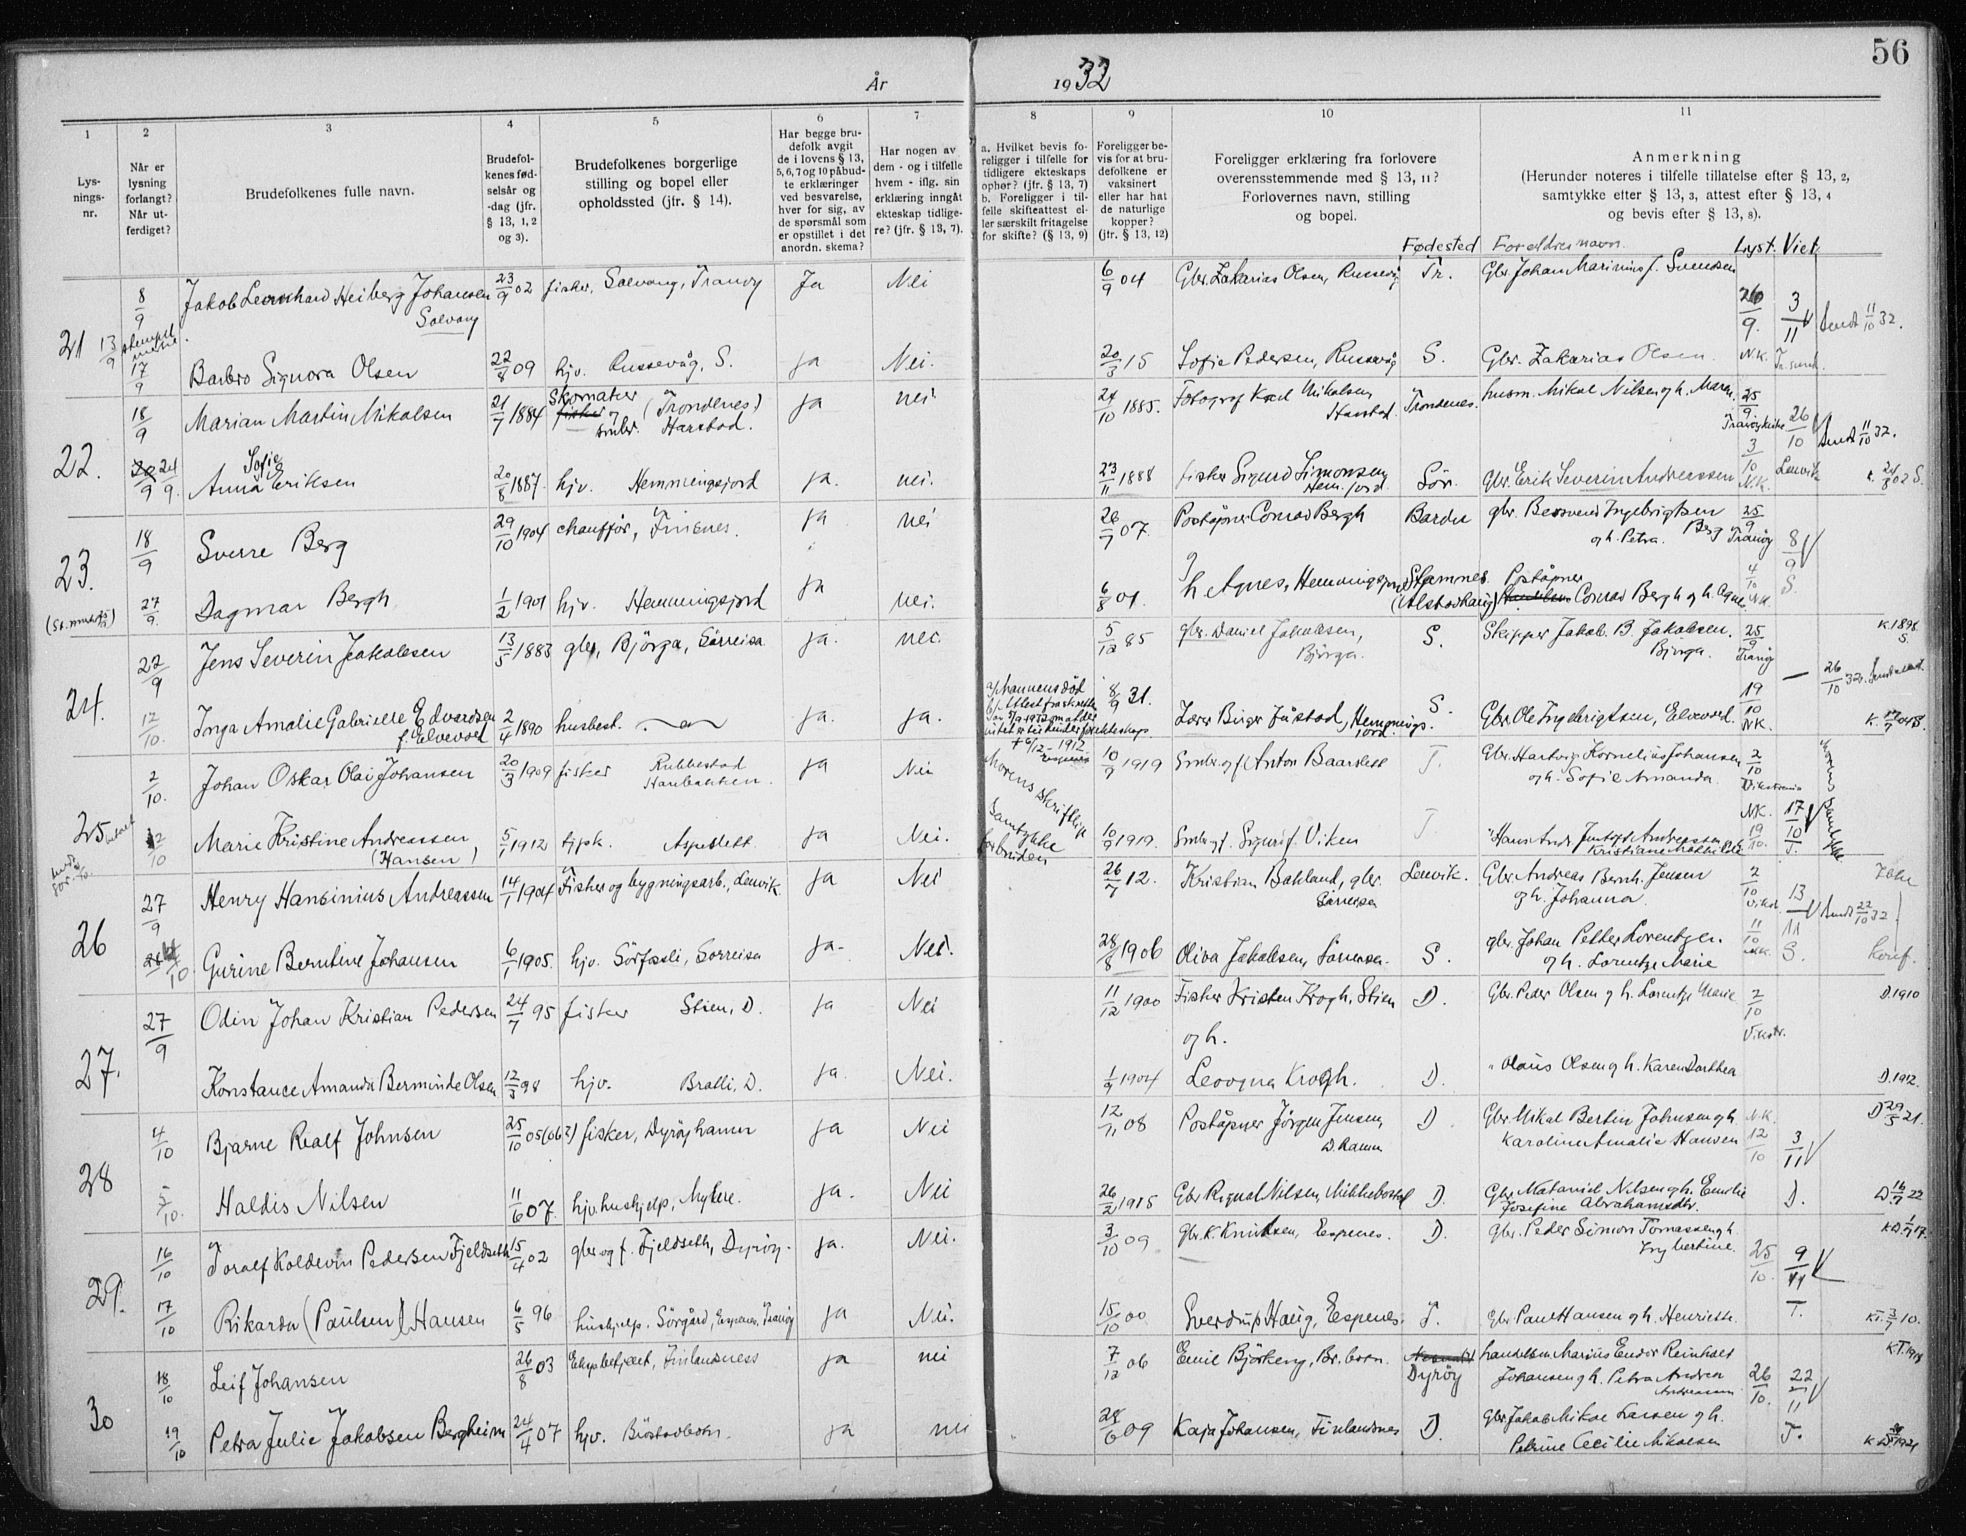 56
År 1932
1 2 3 4 5 6 7 8 9 10 11
Lys-
nings-
nr.
Når er
lysning
forlangt?
Når ut-
ferdiget?
Brudefolkenes fulle navn.
Brudefol-
kenes fød-
selsår og
-dag (jfr.
§ 13, 1, 2
og 3).
Brudefolkenes borgerlige
stilling og bopel eller
opholdssted (jfr. § 14).
Har begge bru-
defolk avgit
de i lovens § 13,
5, 6, 7 og 10 påbud-
te erklæringer
ved besvarelse,
hver for sig, av
de spørsmål som
er opstillet i det
anordn. skema?
Har nogen av
dem - og i tilfelle
hvem - iflg. sin
erklæring inngått
ekteskap tidlige-
re? (jfr. § 13, 7).
a. Hvilket bevis fo-
religger i tilfelle for
tidligere ekteskaps
ophør? (jfr. § 13, 7)
b. Foreligger i til-
felle skifteattest el-
ler særskilt fritagelse
for skifte? (§ 13, 9)
Foreligger be-
vis for at bru-
defolkene er
vaksinert
eller har hat
de naturlige
kopper?
(jfr. § 13, 12)
Foreligger erklæring fra forlovere
overensstemmende med § 13, 11?
Forlovernes navn, stilling
og bopel.
Anmerkning
(Herunder noteres i tilfelle tillatelse efter § 13, 2,
samtykke efter § 13, 3, attest efter § 13, 4
og bevis efter § 13, 8).
Fødested Foreldres navn. Lyst. Viet.
21 8/9 Jakob Leonhard Heiberg Johansen 23/9 02 fisker, Solvang, Tranøy Ja Nei 6/9 04 Gbr. Zakarias Olsen, Russevåg Tr. Gbr. Johan Marinius f. Svendsen 26/9. 3/11 Sendt 11/10 32.
Solvang
13/9 17/9 Barbro Signora Olsen 22/8 09 hjv. Russevåg, S. ja Nei. 20/3 15 Sofie Pedersen, Russevåg S. Gbr. Zakarias Olsen. N.K.
22. 18/9 Marian Martin Mikalsen 21/7 1884 Skomaker (Trondenes) ja nei 24/10 1885. Fotograf Karl Mikalsen Trondenes. husm. Mikal Nilsen og h. Maren 25/9 26/10 Sendt 11/10 32.
fisker småbr. Harstad. Harstad.
24/9. Anna Sofie Eriksen 20/8 1887. hjv. Hemmingsjord ja. nei. 23/11 1888 fisker Sigurd Simonsen Sør. gbr. Erik Severin Andreassen 3/10 N.K. Lenvik
Hem.jord.
23. 18/9 Sverre Berg 29/10 1904 chauffør, Finsnes. ja nei 26/7 07. Poståpner Conrad Bergh Bardu gbr. Ingebrigtsen Berg og h. Petra. 25/9 Tranøy 8/9
27/9. Dagmar Bergh 1/2 1901 hjv. Hemmingsjord ja nei. 6/8 01 h. Agnes, Hemmingsjord Stamnes (Alstahaug) Poståpner Conrad Bergh og h. Agnes 4/10 N.K. S.
24. 22/9 Jens Severin Jakobsen 13/5 1883 gbr, Bjørga, Sørreisa ja. nei 5/12 85 gbr. Daniel Jakobsen, Bjørga. S. Skipper Jakob B. Jakobsen. Bjørga. 25/9 Tranøy K. 1898 S.
17/10. Inga Amalie Gabrielle Edvardsen 2/4 1890 husbest. ja. ja. 8/9 31. Lærer Birger Justad, Hemmings- S. Gbr. Ole Ingebrigtsen, Elvevoll. 19/10 NK. 26/10 32.
f. Elvevoll jord.
25 2/10. Johan Oskar Olai Johansen 20/3 1909 fisker Rubbestad ja Nei Morens skriftlige samtykke for bruden 10/9 1919 Småbr. og f. Anton Baarslett T. Gbr. Hartvig Kornelius Johansen 2/10
og h. Sofie Amanda.
12/10 Marie Kristine Andreassen 5/1 1912 tjpk. Aspeslett ja Nei. 10/9 1919. Småbr. f. Sigurd f. Viken T. Hans Andr. Andreassen NK. 19/10. 17/10 T. Morens samtykke
(Hansen) Kristiane Mathilde
26 27/9 Henry Hansinius Andreassen 14/1 1904 Fisker og bygningsarb., Lenvik ja Nei 26/7 12. Kristian Bakland, gbr. Sørreisa Lenvik. Gbr. Andreas Bernh. Jensen 2/10 13/11 Sendt 22/10 32
og h. Johanna
4/10 Gurine Berntine Johansen 6/1 1905. hjv. Sørfjoseli, Sørreisa ja- Nei. 28/8 1906 Oliva Jakobsen, Sørreisa S. gbr. Johan Petter Lorentzen. 11/10 NK. S. konf.
og h. Lorentze Marie
27. 27/9 Odin Johan Kristian Pedersen 24/7 95 fisker Stien, D. ja Nei 11/12 1900 Fisker Kristen Krogh, Stien D. Gbr. Peder Olsen og h. Lorentze Marie 2/10 D. 1910
og h.
Konstance Amanda Berminde Olsen 12/3 98 hjv. Bralli, D. ja. Nei. 1/9 1904 Leovgna Krogh. D. " Olaus Olsen og h. Karen Dorthea D. 1912.
28 4/10 Bjarne Roalf Johnsen 25/10 05 (06?) fisker, Dyrøyhamn ja Nei 12/11 08 Poståpner Jørgen Jensen, D. Gbr. Mikal Bertin Johnsen og h. N.K. 12/10 3/11 D 29/5 21.
Karoline Amalie Hansen
5/10. Haldis Nilsen 11/6 07. hjv. hushjelp, Myhre. ja. Nei 26/2 1915 Gbr. Ragnal Nilsen, Mikkelbostad D. Gbr. Mataniel Nilsen og h. Emilie Josefine Abrahamsdtr. D. D 16/7 22
29. 16/10 Toralf Koldevin Pedersen Fjeldseth 15/4 02 gbr. og f. Fjeldseth, Dyrøy. ja. Nei. 3/10 09 gbr. K. Knudsen, Espenes. D. gbr. Peder Simon Tomassen og h. Ingbertine. 25/10. 9/11 KD. 1/7 17.
17/10 Rikarda (Paulsen) Hansen 6/5 96 hushjelp. Sørgård, Espenes, Tranøy ja Nei. 15/10 00 Sverdrup Haug, Espenes. T. Gbr. Paul Hansen og h. Henriette. T. KT. 3/7 10.
30 18/10 Leif Johansen 26/8 03 Finlandsness ja nei 7/12 06 Emil Bjørkeng, Br.botn. Dyrøy handelsm. Marius Ender Reinholt 26/10. 22/11 K.T. 1918
Johansen og h. Petra Andrea Andreassen
19/10 Petra Julie Jakobsen Bergheim 24/4 07 hjv. Brøstadbotn. ja nei 28/6 09 Kaja Johansen, Finlandsnes D. Gbr. Jakob Mikal Larsen og h. T.
Petrine Cecilie Mikalsen